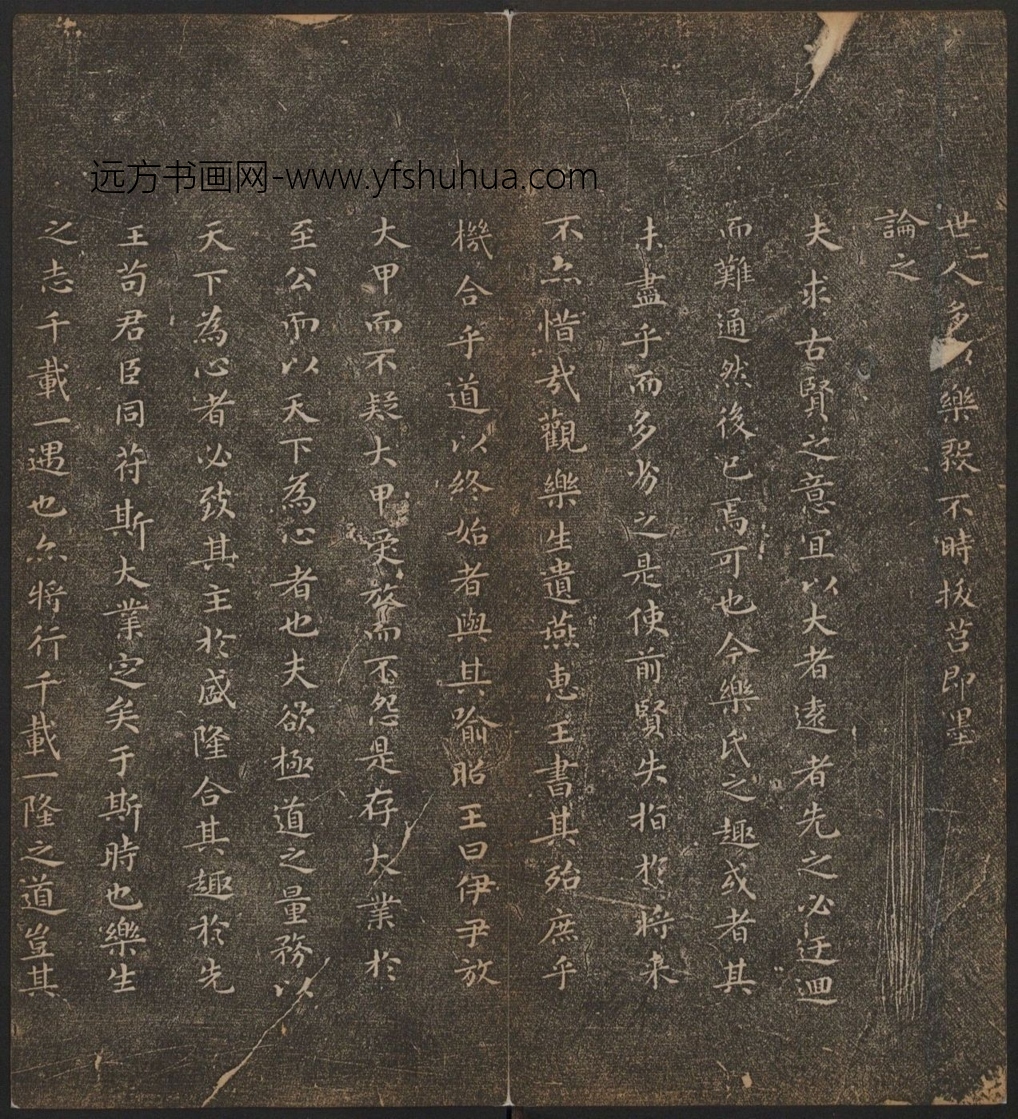 远方书画网-www.yfshuhua.com
世人多以樂毅不時拔莒即墨
論之
夫求古賢之意宜以大者遠者先之必迂迴
而難通然後已焉可也今樂氏之趣或者其
未盡乎而多劣之是使前賢失指於將來
不亦惜哉觀樂生遺燕惠王書其殆庶乎
機合乎道以終始者與其喻昭王曰伊尹放
大甲而不疑大甲受放而不怨是存大業於
至公而以天下為心者也夫欲極道之量務以
天下為心者必致其主於盛隆合其趣於先
王苟君臣同苻斯大業定矣于斯時也樂生
之志千載一遇也亦將行千載一隆之道豈其